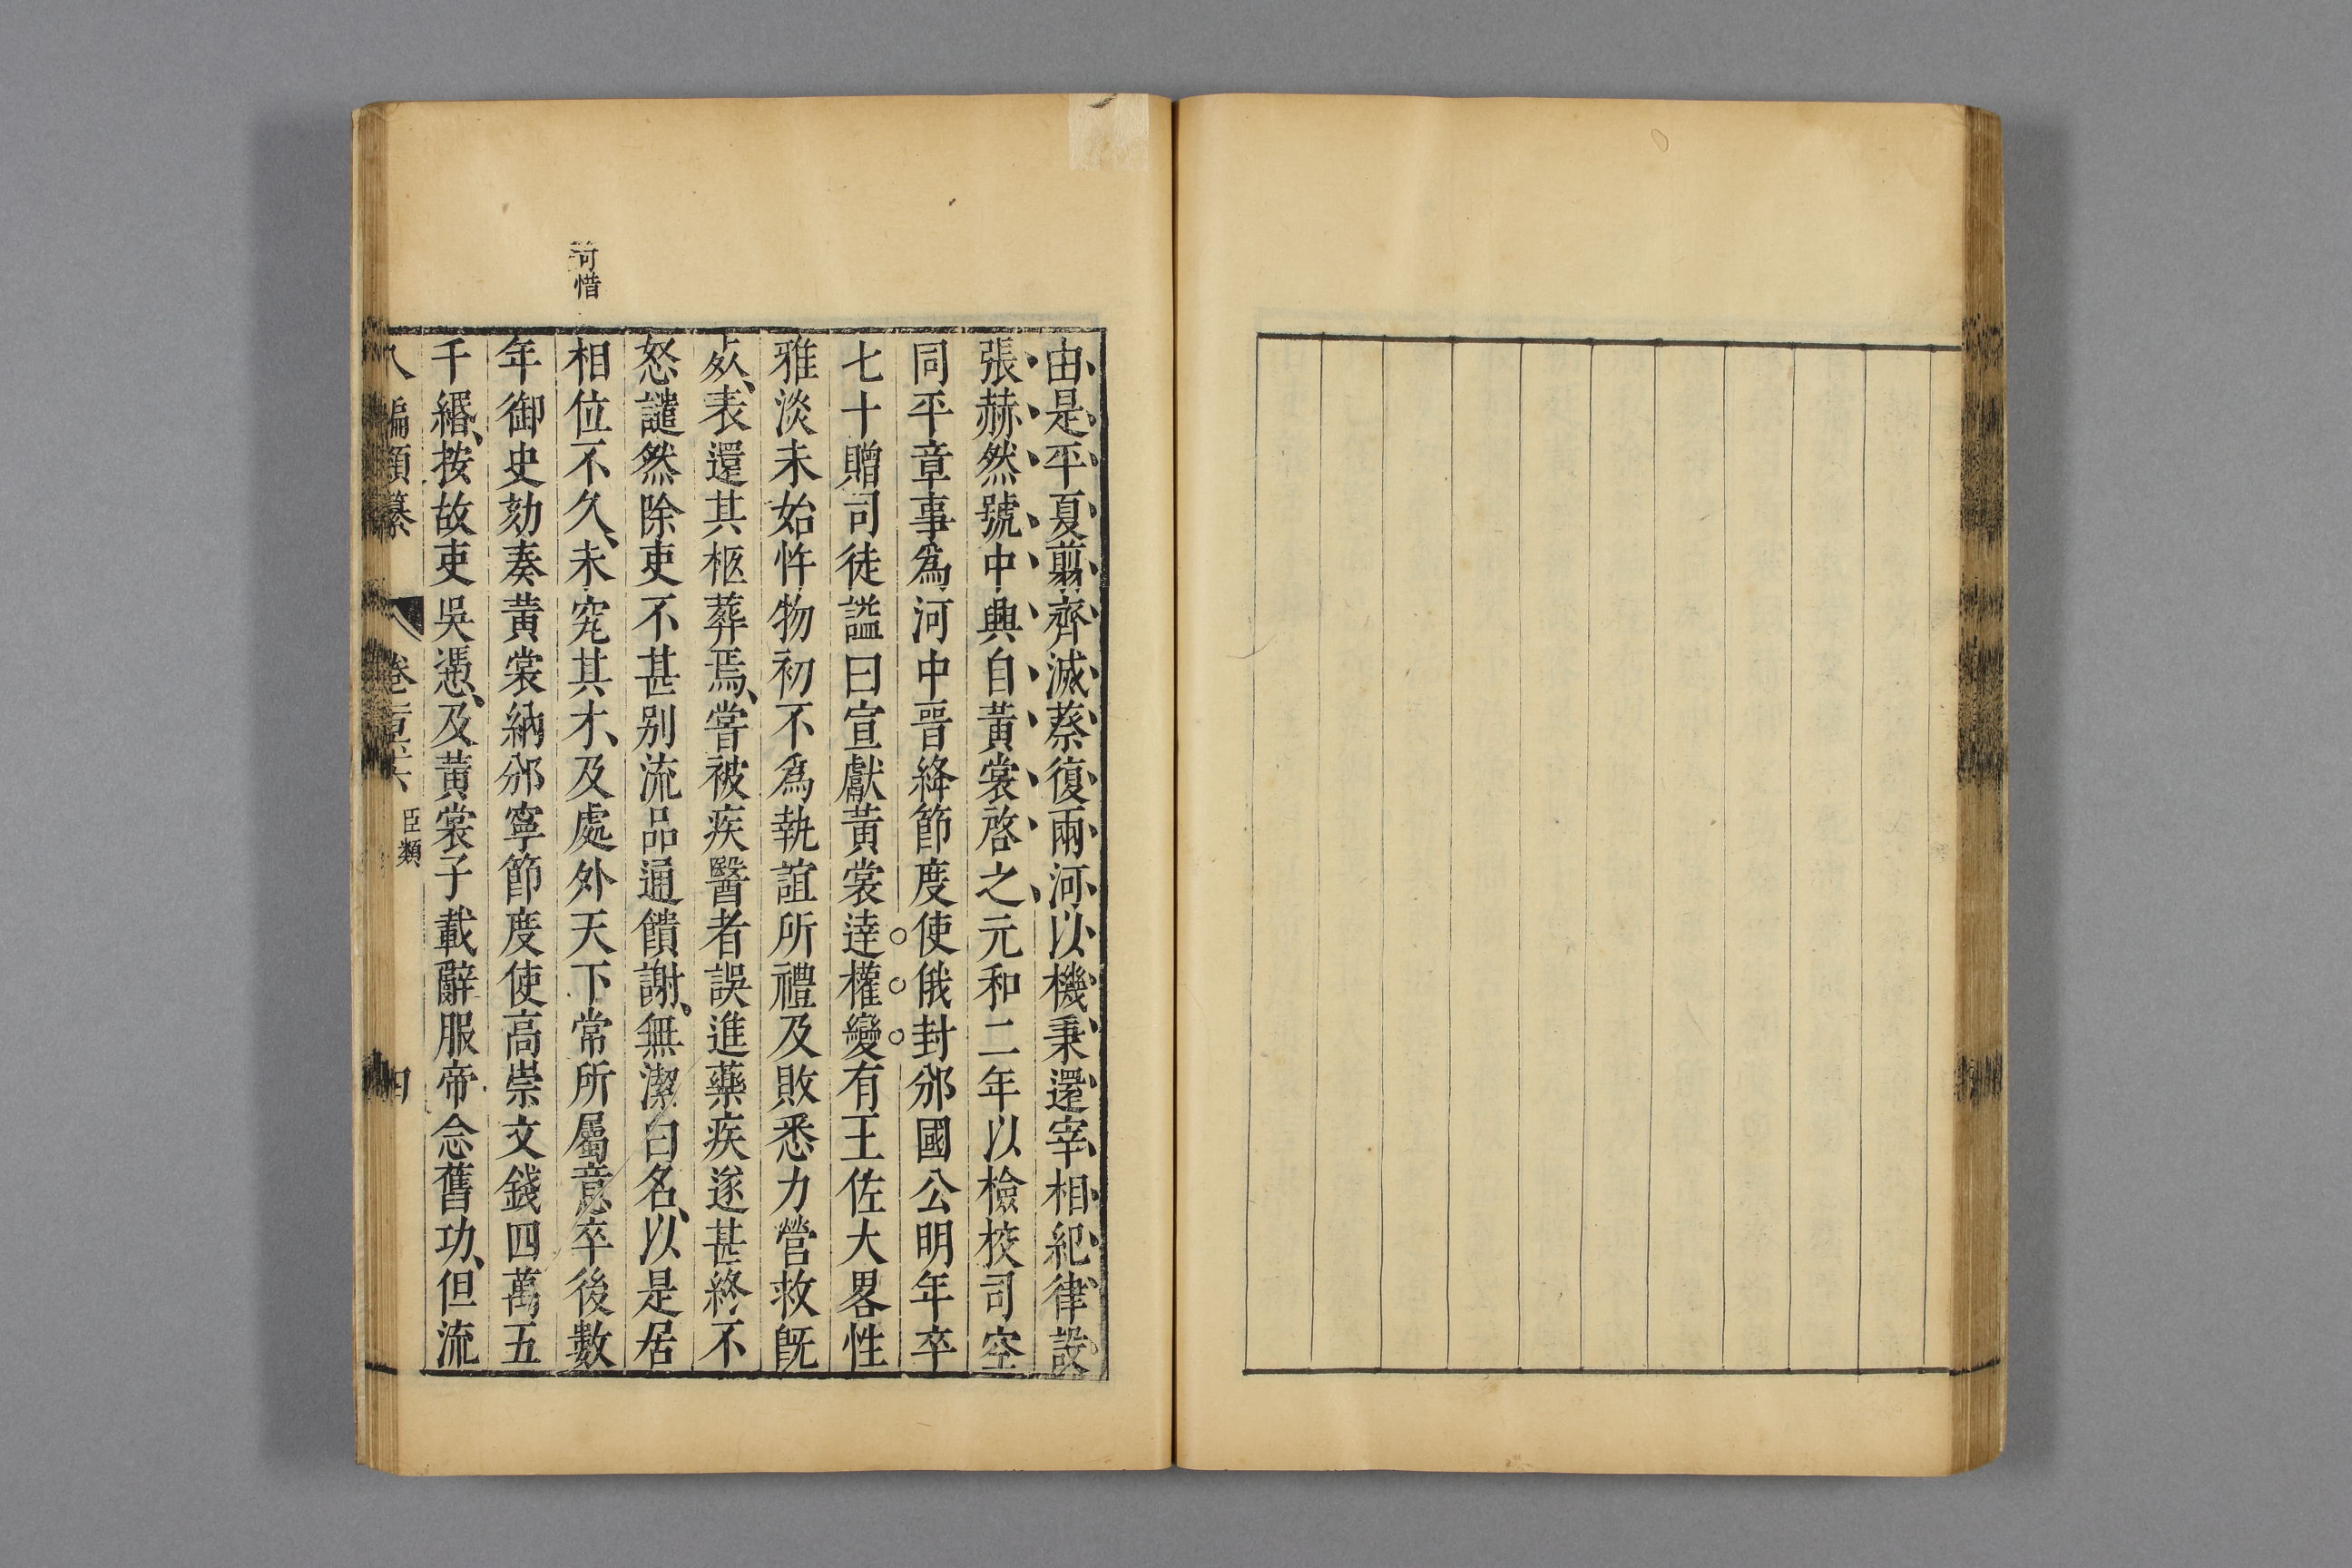 由是平夏翦齊滅蔡復兩河以機秉還宰相紀律設
張赫然號中興自黃裳啓之元和二年以檢校司空
同平章事爲河中晉絳節度使俄封邠國公明年卒
七十贈司徒謚曰宣獻黃裳達權變有王佐大畧性
雅淡未始忤物初不爲執誼所禮及敗悉力營救既
死表還其柩葬焉嘗被疾醫者誤進藥疾遂甚終不
怒譴然除吏不甚別流品通饋謝無潔白名以是居
可惜
相位不久未究其才及處外天下常所屬意卒後數
年御史劾奏黃裳納邠寧節度使高崇文錢四萬五
千緡按故吏吳憑及黃裳子載辭服帝念舊功但流
八編類纂 卷 臣類 四